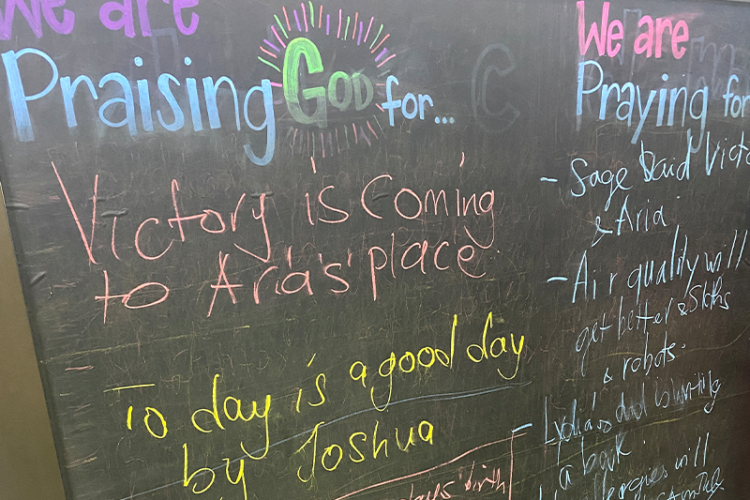 We are
Praising God for...
Victory is Coming
to Aria's place.
Today is a good day
by Joshua
days with
We are
Praying for
- Sage Victo
& Aria
- Air quality will
get better &
& robots.
- dad is writing
a book.
will